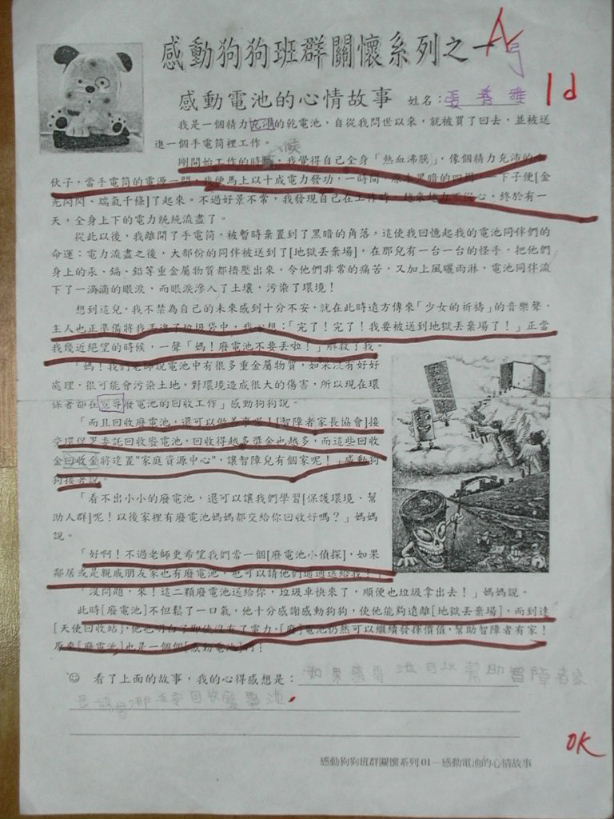 感動狗狗班群關懷系列之一
感動電池的心情故事 姓名：
1d
我是一個精力充沛的乾電池，自從我問世以來，就被買了回去，並被送
進一個手電筒裡工作。
剛開始工作的時候，我覺得自己全身「熱血沸騰」，像個精力充沛的小
伙子，當手電筒的電源一開，我使馬上以十成電力發功，一時間，原本黑暗的四周，一下子便[金
光閃閃、瑞氣千條]了起來。不過好景不常，我發現自己在工作時，越來越力不從心，終於有一
天，全身上下的電力統統流盡了。
從此以後，我離開了手電筒，被暫時棄置到了黑暗的角落，這使我回憶起我的電池同伴們的
命運：電力流盡之後，大部份的同伴被送到了[地獄丟棄場]，在那兒有一台一台的怪手，把他們
身上的汞、鎘、鉛等重金屬物質都擠壓出來，令他們非常的痛苦，又加上風曬雨淋，電池同伴流
下了一滴滴的眼淚，而眼淚滲入了土壤，污染了環境！
想到這兒，我不禁為自己的未來感到十分不安，就在此時遠方傳來「少女的祈禱」的音樂聲，
主人也正準備將我丟進了垃圾袋中，我心想：「完了！完了！我要被送到地獄丟棄場了！」正當
我幾近絕望的時候，一聲「媽！廢電池不要丟啦！」解救了我。
「媽！我們老師說電池中有很多重金屬物質，如果沒有好好
處理，很可能會污染土地，對環境造成很大的傷害，所以現在環
保署都在廢電池的回收工作」感動狗狗說。
「而且回收廢電池，還可以做善事呢！[智障者家長協會]接
受環保署委託回收廢電池，回收得越多獎金也越多，而這些回收
金回收金將設置"家庭資源中心"，讓智障兒有個家呢！」感動狗
狗接著說。
「看不出小小的廢電池，還可以讓我們學習[保護環境、幫
助人群]呢！以後家裡有廢電池媽媽都交給你回收好嗎？」媽媽
說。
「好啊！不過老師更希望我們當一個[廢電池小偵探]，如果
鄰居或是親戚朋友家也有廢電池，也可以請他們通通送給我！」
「沒問題，來！這二顆廢電池送給你，垃圾車快來了，順便也垃圾拿出去！」媽媽說。
此時[廢電池]不但鬆了一口氣，他十分感謝感動狗狗，使他能夠遠離[地獄丟棄場]，而到達
[天使回收站]，他也明白了即使沒有了電力，[廢]電池仍然可以繼續發揮價值，幫助智障者有家！
原來[廢電池]也是一個個[感動電池]！
☺ 看了上面的故事，我的心得感想是：如果廢電池可以幫助智障者家
回收廢電池。
OK
感動狗狗班群關懷系列01—感動電池的心情故事